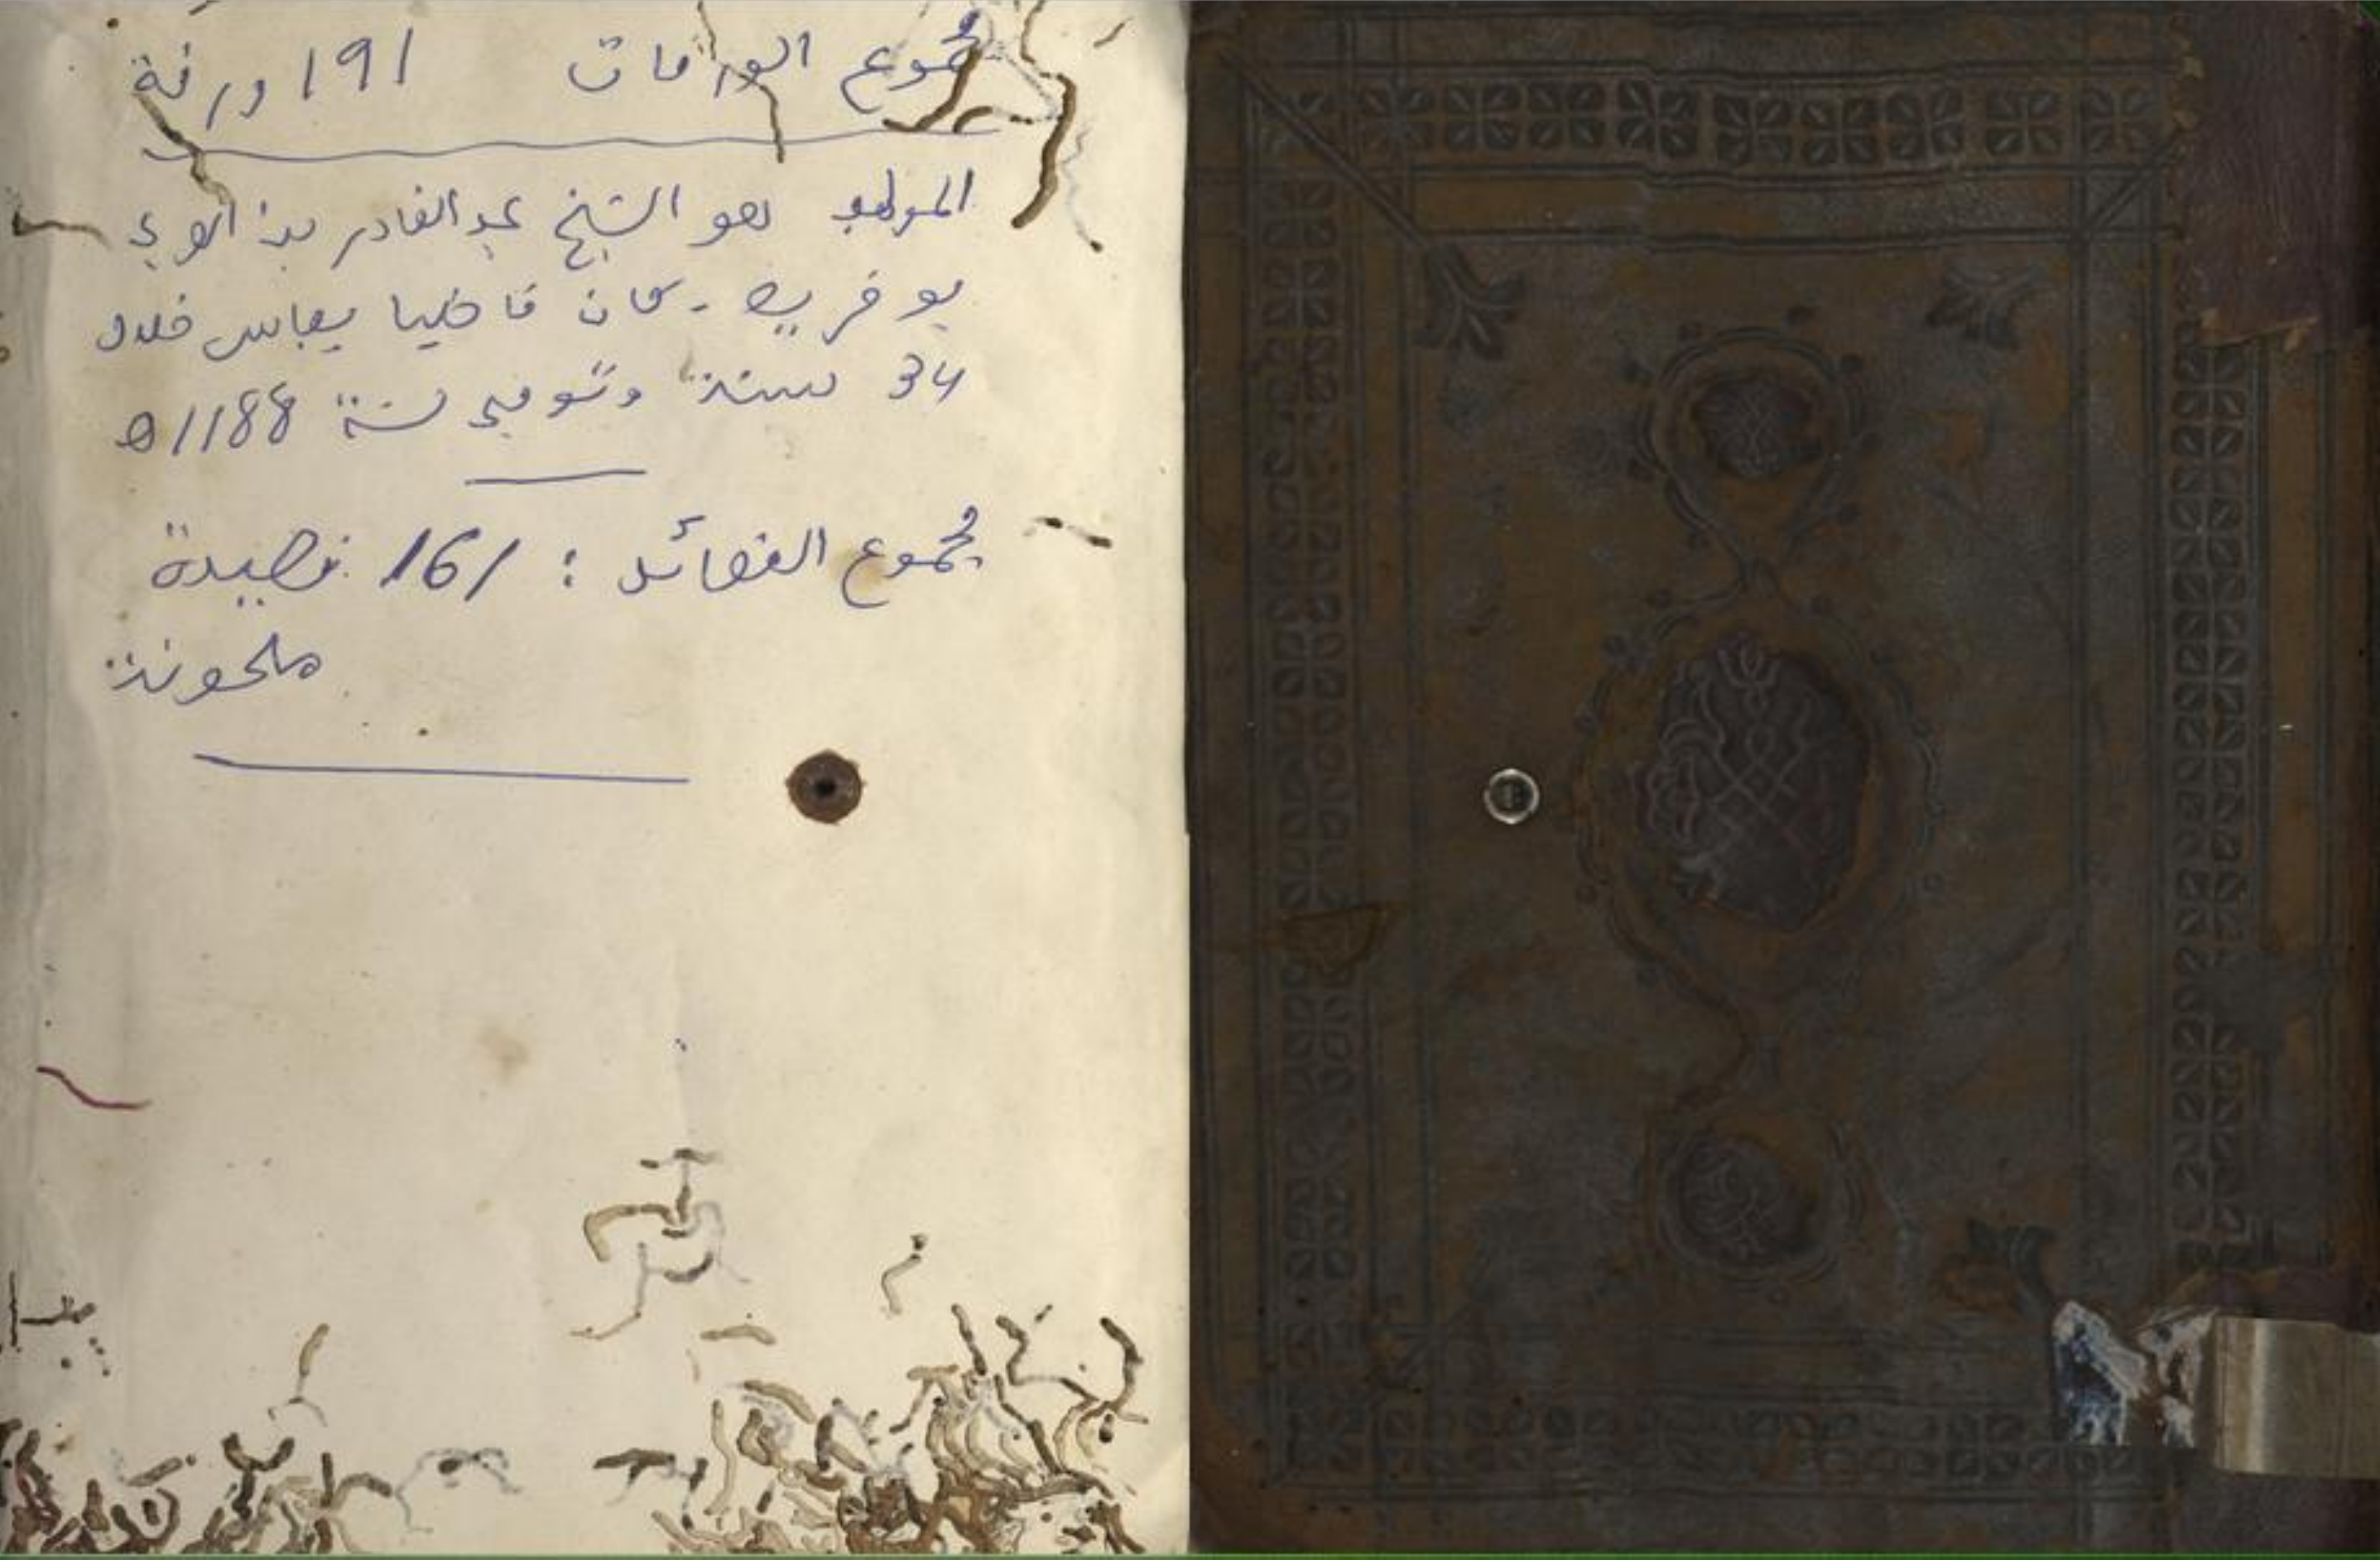 مجموع الورقات 191 ورقة
المؤلف هو الشيخ عبد القادر بن العربي
بوخريص . كان قاضيا بفاس خلال
34 سنة وتوفي سنة 1188ه
مجموع القصائد : 161 قصيدة
ملحونة